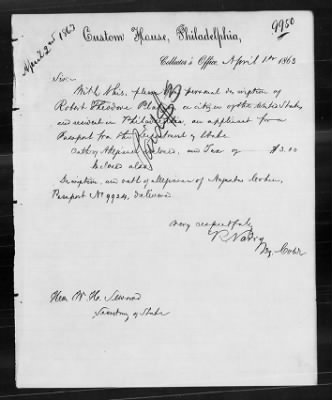 9950
April 2nd 1863
Custom House, Philadelphia,
Collector's Office April 1st 1863
Sir:
With this, please find personal description of
Robert Theodore a citizen of the United States
and resident in Philadelphia, an applicant for a
Passport from the Department of State
Oath of Allegiance enclosed, and Tax of $3.00
inclosed also
Description, and oath of allegiance of Augustus
Passport No 9924, delivered.
Very respectfully
Dy. Collr
Hon W. H. Seward
Secretary of State